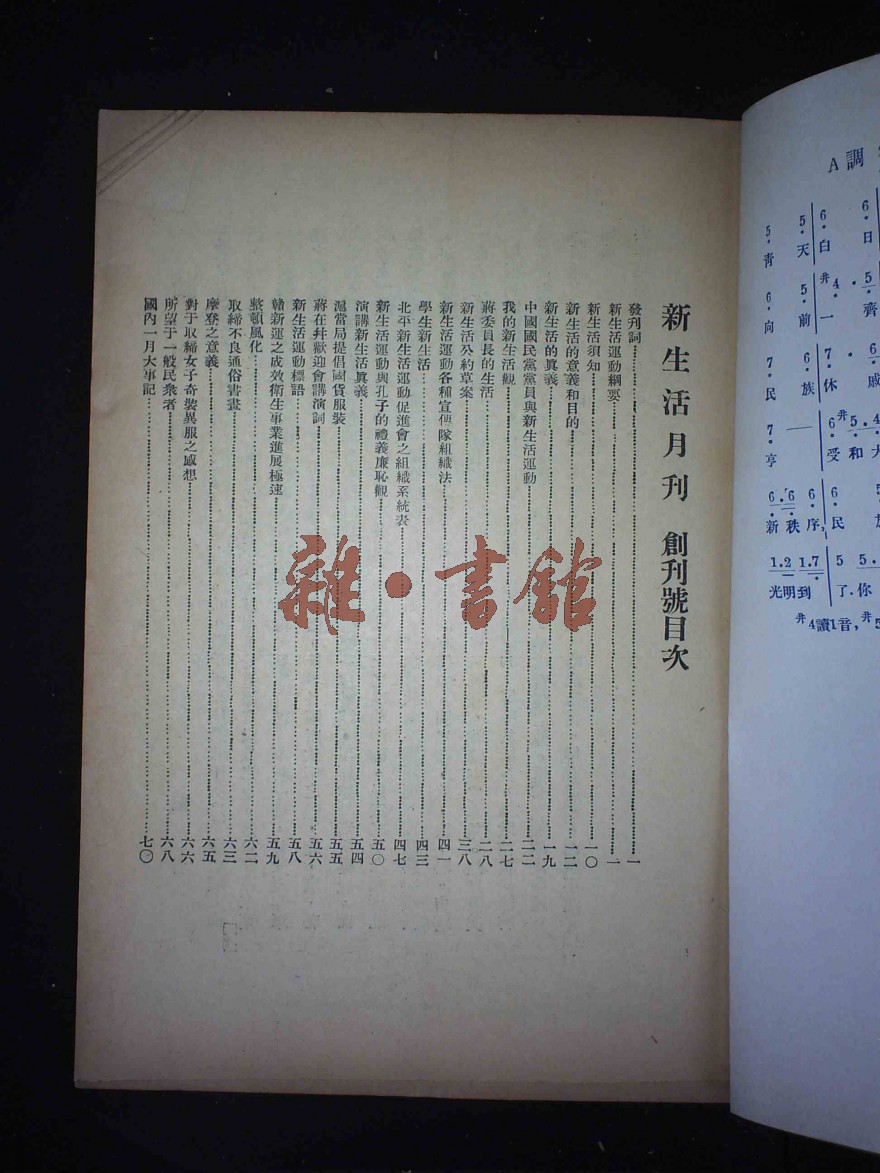 A調
5 5 6 6
青天白日
6 5 #4 · 5
向前一齊
7 7 · 6
民族休戚
7 — 6 #5 · 4
享受和大
6 · 6 6 6
新秩序,民
1·2 1·7 5 5·
光明到了·你
#4讀1音,#5
新生活月刊 創刊號目次
發刊詞……一
新生活運動綱要……一
新生活須知……一〇
新生活的意義和目的……一二
新生活的真義……一九
中國國民黨黨員與新生活運動……二二
我的新生活觀……二七
蔣委員長的生活……二八
新生活公約草案……三八
新生活運動各種宣傳隊組織法……四一
學生新生活……四三
北平新生活運動促進會之組織系統表……四七
新生活運動與孔子的禮義廉恥觀……五〇
演講新生活真義……五四
滬當局提倡國貨服裝……五五
蔣在幷歡迎會講演詞……五六
新生活運動標語……五八
贛新運之成效衛生事業進展極速……五九
整頓風化……六二
取締不良通俗書畫……六三
摩登之意義……六五
對于取締女子奇裝異服之感想……六六
所望于一般民衆者……六八
國內一月大事記……七〇
雜·書館